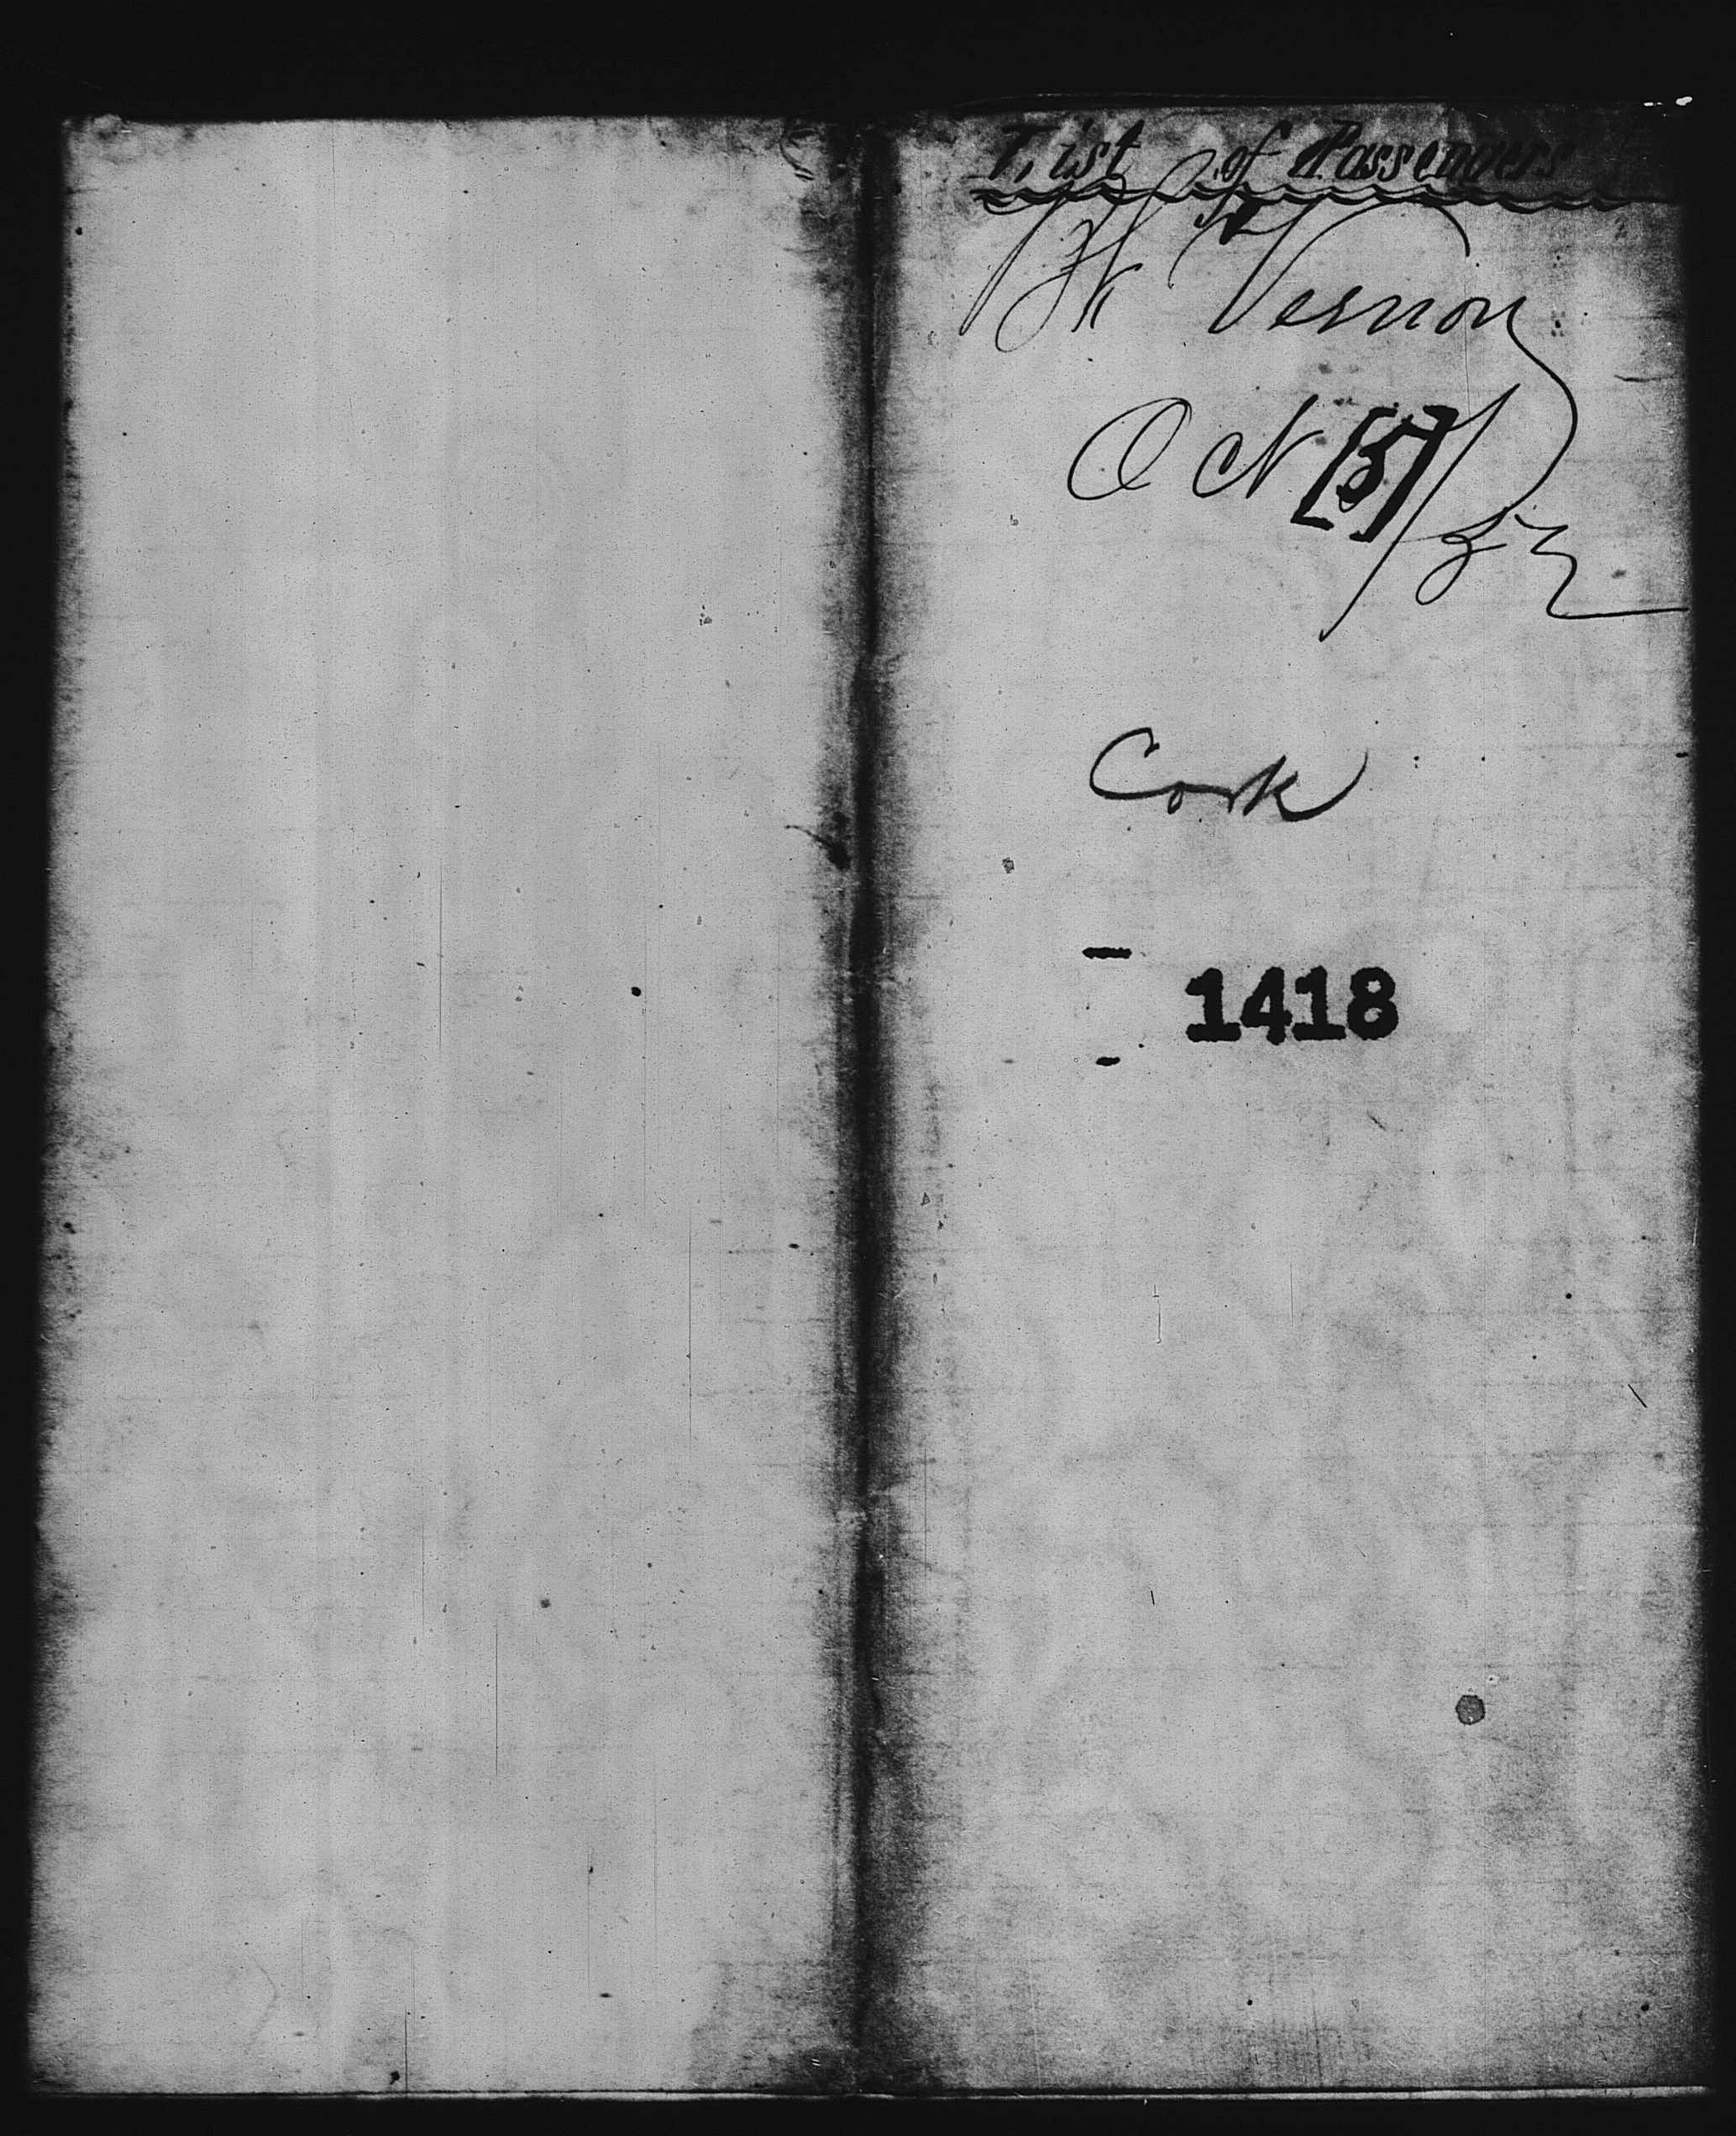 List of Passengers
Vernon
Oct [5]/52
Cork
1418